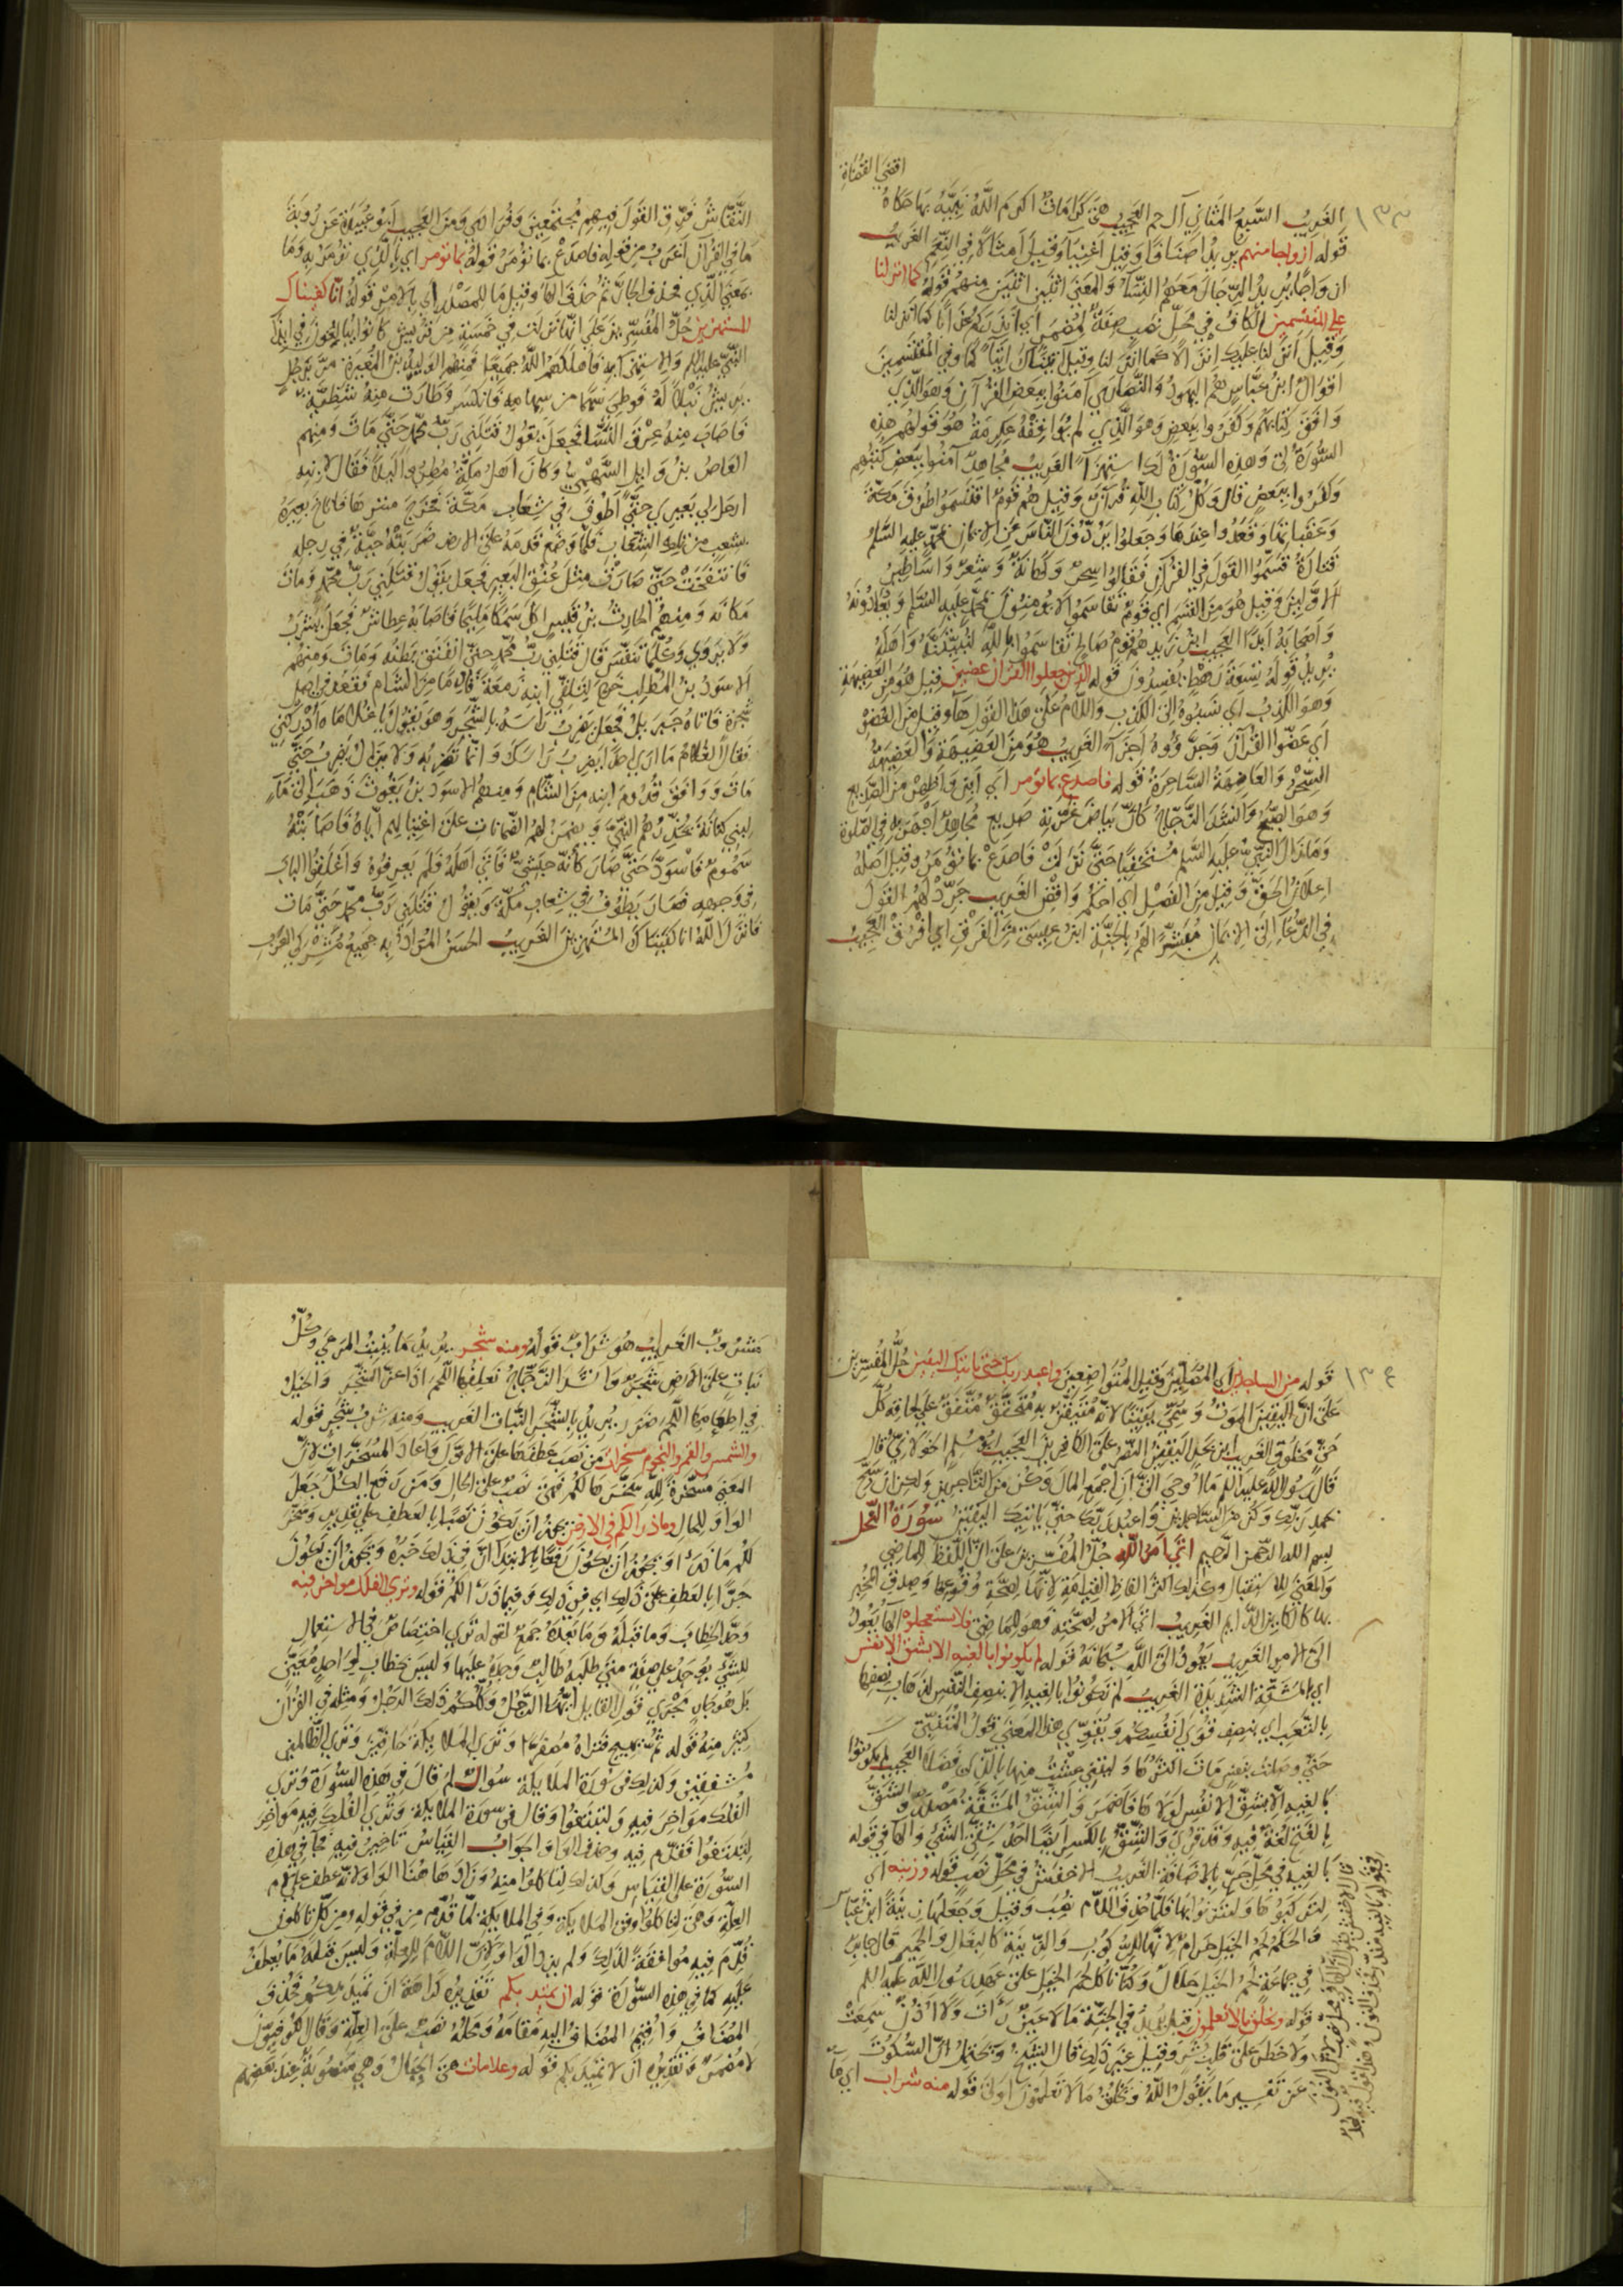 اقضى القضاة
١٣٣
الغريب السبع المثاني آل حم العجيب هن كرامات اكرم الله نبيه بها حكاه
قوله ازواجا منهم يريد اصنافا وقيل اغنيا وقيل امثالا في النعم الغريب
ان واجا يريد الرجال معهم النسآ والمعنى اثنين اثنين منهم قوله كما انزلنا
على المقتسمين الكاف في محل نصب صفة لمضمر اي انذرتكم عذابا كما انزلنا
وقيل انزلنا عليك انزالا كما انزلنا وقيل آتيناك ايتآ كما وفي المقتسمين
اقوال ابن عباس هم اليهود والنصارى آمنوا ببعض القرآن وهو الذي
وافق كتابهم وكفروا ببعض وهو الذي لم يوافقه عكرمة هو قولهم هذه
السورة لي وهذه السورة لك استهزآ الغريب مجاهد آمنوا ببعض كتبهم
وكفروا ببعض قال وكل كتاب الله قرآن وقيل هم قوم اقتسموا طرق مكة
وعقباتها وقعدوا عندها وجعلوا يردون الناس عن الايمان بمحمد عليه السلم
قتادة قسموا القول في القرآن فقالوا سحر وكهانة وشعر واساطير
الاولين وقيل هو من القسم اي قوم تقاسموا لا يؤمنون بمحمد عليه السلم ويعادونه
واصحابه ابدا العجيب ابن زيد هم قوم صالح تقاسموا بالله لنبيتنه واهله
يريد قوله تسعة رهط يفسدون قوله الذين جعلوا القرآن عضين قيل هو من العضيهة
وهو الكذب اي نسبوه الى الكذب واللام على هذا القول هآ وقيل من العضو
اي عضوا القرآن وجزؤوه اجزآ الغريب هو من العضيهة والعضيهة
السحر والعاضهة الساحرة قوله فاصدع بما تؤمر اي ابن واظهر من الصديع
وهو الصبح وانشد الزجاج كأن بياض غرته صديع مجاهد اجهر به في الصلوة
وما زال النبي عليه السلم مستخفيا حتى نزلت فاصدع بما تؤمر وقيل اصله
اعلان الحق وقيل من الفصل اي احكم وافض الغريب جرد لهم القول
في الدعاء الى الايمان مبشرا لهم بالجنة ابن عيسى من الفرق اي افرق العجيب
النقاش فرق القول فيهم مجتمعين وفرادى ومن العجيب ابو عبيدة عن رؤبة
ما في القرآن اغرب من قوله فاصدع بما تؤمر قوله بما تؤمر اي بالذي تؤمر به وما
بمعنى الذي فحذف الجار ثم حذف الهآ وقيل ما للمصدر اي بالامر قوله انا كفيناك
المستهزئين جل المفسرين على انها نزلت في خمسة من قريش كانوا يبالغون في ايذآ
النبي عليه السلم والاستهزآ به فاهلكهم الله جميعا فمنهم الوليد بن المغيرة مر برجل
يريش نبلا له فوطي سهما من سهامه فانكسر وطارت منه شظية
فاصاب منه عرق النسا فجعل يقول قتلني رب محمد حتى مات ومنهم
العاص بن وايل السهمي وكان اهل مكة مطروا ليلا فقال لابنه
ارحل لي بعيري حتى اطوف في شعاب مكة فخرج متنزها فاناخ بعيره
بشعب من تلك الشعاب فلما وضع قدمه على الارض ضربته حية في رجله
فانتفخت حتى صارت مثل عنق البعير فجعل يقول قتلني رب محمد ومات
مكانه ومنهم الحارث بن قيس اكل سمكا مليحا فاصابه عطاش فجعل يشرب
ولا يروى وكلما تنفس قال قتلني رب محمد حتى انفتق بطنه ومات ومنهم
الاسود بن المطلب خرج ليتلقى ابنه زمعة قادما من الشام فقعد في اصل
شجرة فاتاه جبريل فجعل يضرب رأسه بالشجر وهو يقول يا غلاماه ادركني
فقال الغلام ما ارى احدا يضرب رأسك وانما تضربه ولا يزال يضرب حتى
مات ووافق قدوم ابنه من الشام ومنهم الاسود بن يغوث ذهب الى مآ
لبني كنانة يحذرهم النبي ويضمن لهم الضمانات على اغتيالهم اياه فاصابته
سموم فاسود حتى صار كأنه حبشي فاتى اهله فلم يعرفوه واغلقوا الباب
في وجهه فصار يطوف في شعاب مكة ويقول قتلني رب محمد حتى مات
فانزل الله انا كفيناك المستهزئين الغريب الحسن المراد به جميع مشركي العرب
١٣٤
قوله من الساجدين اي المصلين وقيل المتواضعين واعبد ربك حتى ياتيك اليقين جل المفسرين
على ان اليقين الموت وسمي يقينا لانه متيقن به متحقق متفق على لحاقه كل
حي مخلوق الغريب ابن بحر اليقين النصر على الكافرين العجيب ابو مسلم الخولاني قال
قال رسول الله عليه السلم ما اوحي الي ان اجمع المال واكون من التاجرين ولكن ان سبح
بحمد ربك وكن من الساجدين واعبد ربك حتى ياتيك اليقين سورة النحل
بسم الله الرحمن الرحيم اتى امر الله جل المفسرين على ان اللفظ للماضي
والمعنى للاستقبال وكذلك اكثر الفاظ القيامة لانها لصحة وقوعها وصدق المخبر
بها كالكاين الدايم الغريب اتى الامر لصحته فهو لما مضى فلا تستعجلوه الهآ يعود
الى الامر الغريب يعود الى الله سبحانه قوله لم تكونوا بالغيه الا بشق الانفس
اي المشقة الشديدة الغريب لم تكونوا بالغيه الا بنصف النفس لذهاب بعضها
بالتعب اي بنصف قوى انفسكم ويقوي هذا المعنى قول المتنبي
حتى وصلت بنفس مات اكثرها وليتني عشت منها بالذي فضلا العجيب لم تكونوا
بالغيه الا بشق الانفس لولاها فاضمر والشق المشقة مصدر والشق
بالفتح لغة فيه وقد قرئ والشق بالكسر ايضا احد شقي الشي والهآ في قوله
بالغيه في محل جر بالاضافة الغريب الاخفش في محل نصب قوله وزينة اي
لتركبوها ولتتزينوا بها فلما حذف اللام نصب وقيل وجعلها زينة ابن عباس
والحكم لحم الخيل حرام لانها للركوب والزينة كالبغال والحمير قال جابر
في جماعة لحم الخيل حلال وكنا ناكل لحم الخيل على عهد رسول الله عليه السلم
قوله ويخلق ما لا تعلمون قيل يريد في الجنة ما لا عين رأت ولا اذن سمعت
ولا خطر على قلب بشر وقيل غير ذلك قال الشيخ ويحتمل ان السكوت
عن تفسير ما يقول الله ويخلق ما لا تعلمون اولى قوله منه شراب اي ماء
مشروب الغريب هو شراب قوله ومنه شجر يريد ما ينبت المرعى وكل
نبات على الارض شجر وانشد الزجاج نعلفها اللحم اذا عز الشجر والخيل
في اطعامها اللحم ضرر يريد بالشجر النبات الغريب ومنه شرب شجر قوله
والشمس والقمر والنجوم مسخرات من نصب عطفها على الاول واعاد المسخرات لان
المعنى مسخرة لله سخرها لكم فهي نصب على الحال ومن رفع الكل جعل
الواو للحال وما ذرا لكم في الارض يجوز ان يكون نصبا بالعطف على تقدير وسخر
لكم ما ذرأ ويجوز ان يكون رفعا بالابتدآ ان في ذلك خبره ويجوز ان يكون
جرا بالعطف على ذلك اي في ذلك وفيما ذرأ لكم قوله وترى الفلك مواخر فيه
وحد الخطاب وما قبله وما بعده جمع لقوله ترى اختصاص في الاستعمال
للشي يوجد على صفة متى طلبه طالب وجده عليها وليس خطاب لواحد معين
بل هو جار مجرى قول القايل ايها الرجل وكلكم ذلك الرجل ومثله في القرآن
كثير منه قوله ثم يهيج فتراه مصفرا وترى الملايكة حافين وترى الظالمين
مشفقين وكذلك في سورة الملايكة سوال لم قال في هذه السورة وترى
الفلك مواخر فيه ولتبتغوا وقال في سورة الملايكة وترى الفلك فيه مواخر
لتبتغوا فقدم فيه وحذف الواو الجواب القياس تاخير فيه فجآ في هذه
السورة على القياس وكذلك لتاكلوا منه وزاد هاهنا الواو لانه عطف على لام
العلة وهي لتاكلوا وفي الملايكة لما قدم من في قوله ومن كل تاكلون
قدم فيه موافقة لذلك ولم يزد الواو لان اللام للعلة وليس قبله ما يعطف
عليه كما في هذه السورة قوله ان تميد بكم تقديره كراهة ان تميد بكم فحذف
المضاف واقيم المضاف اليه مقامه ومحله نصب على العلة وقال الكوفيون
لا مضمر وتقديره ان لا تميد بكم قوله وعلامات هي الجبال وهي منصوبة عند بعضهم